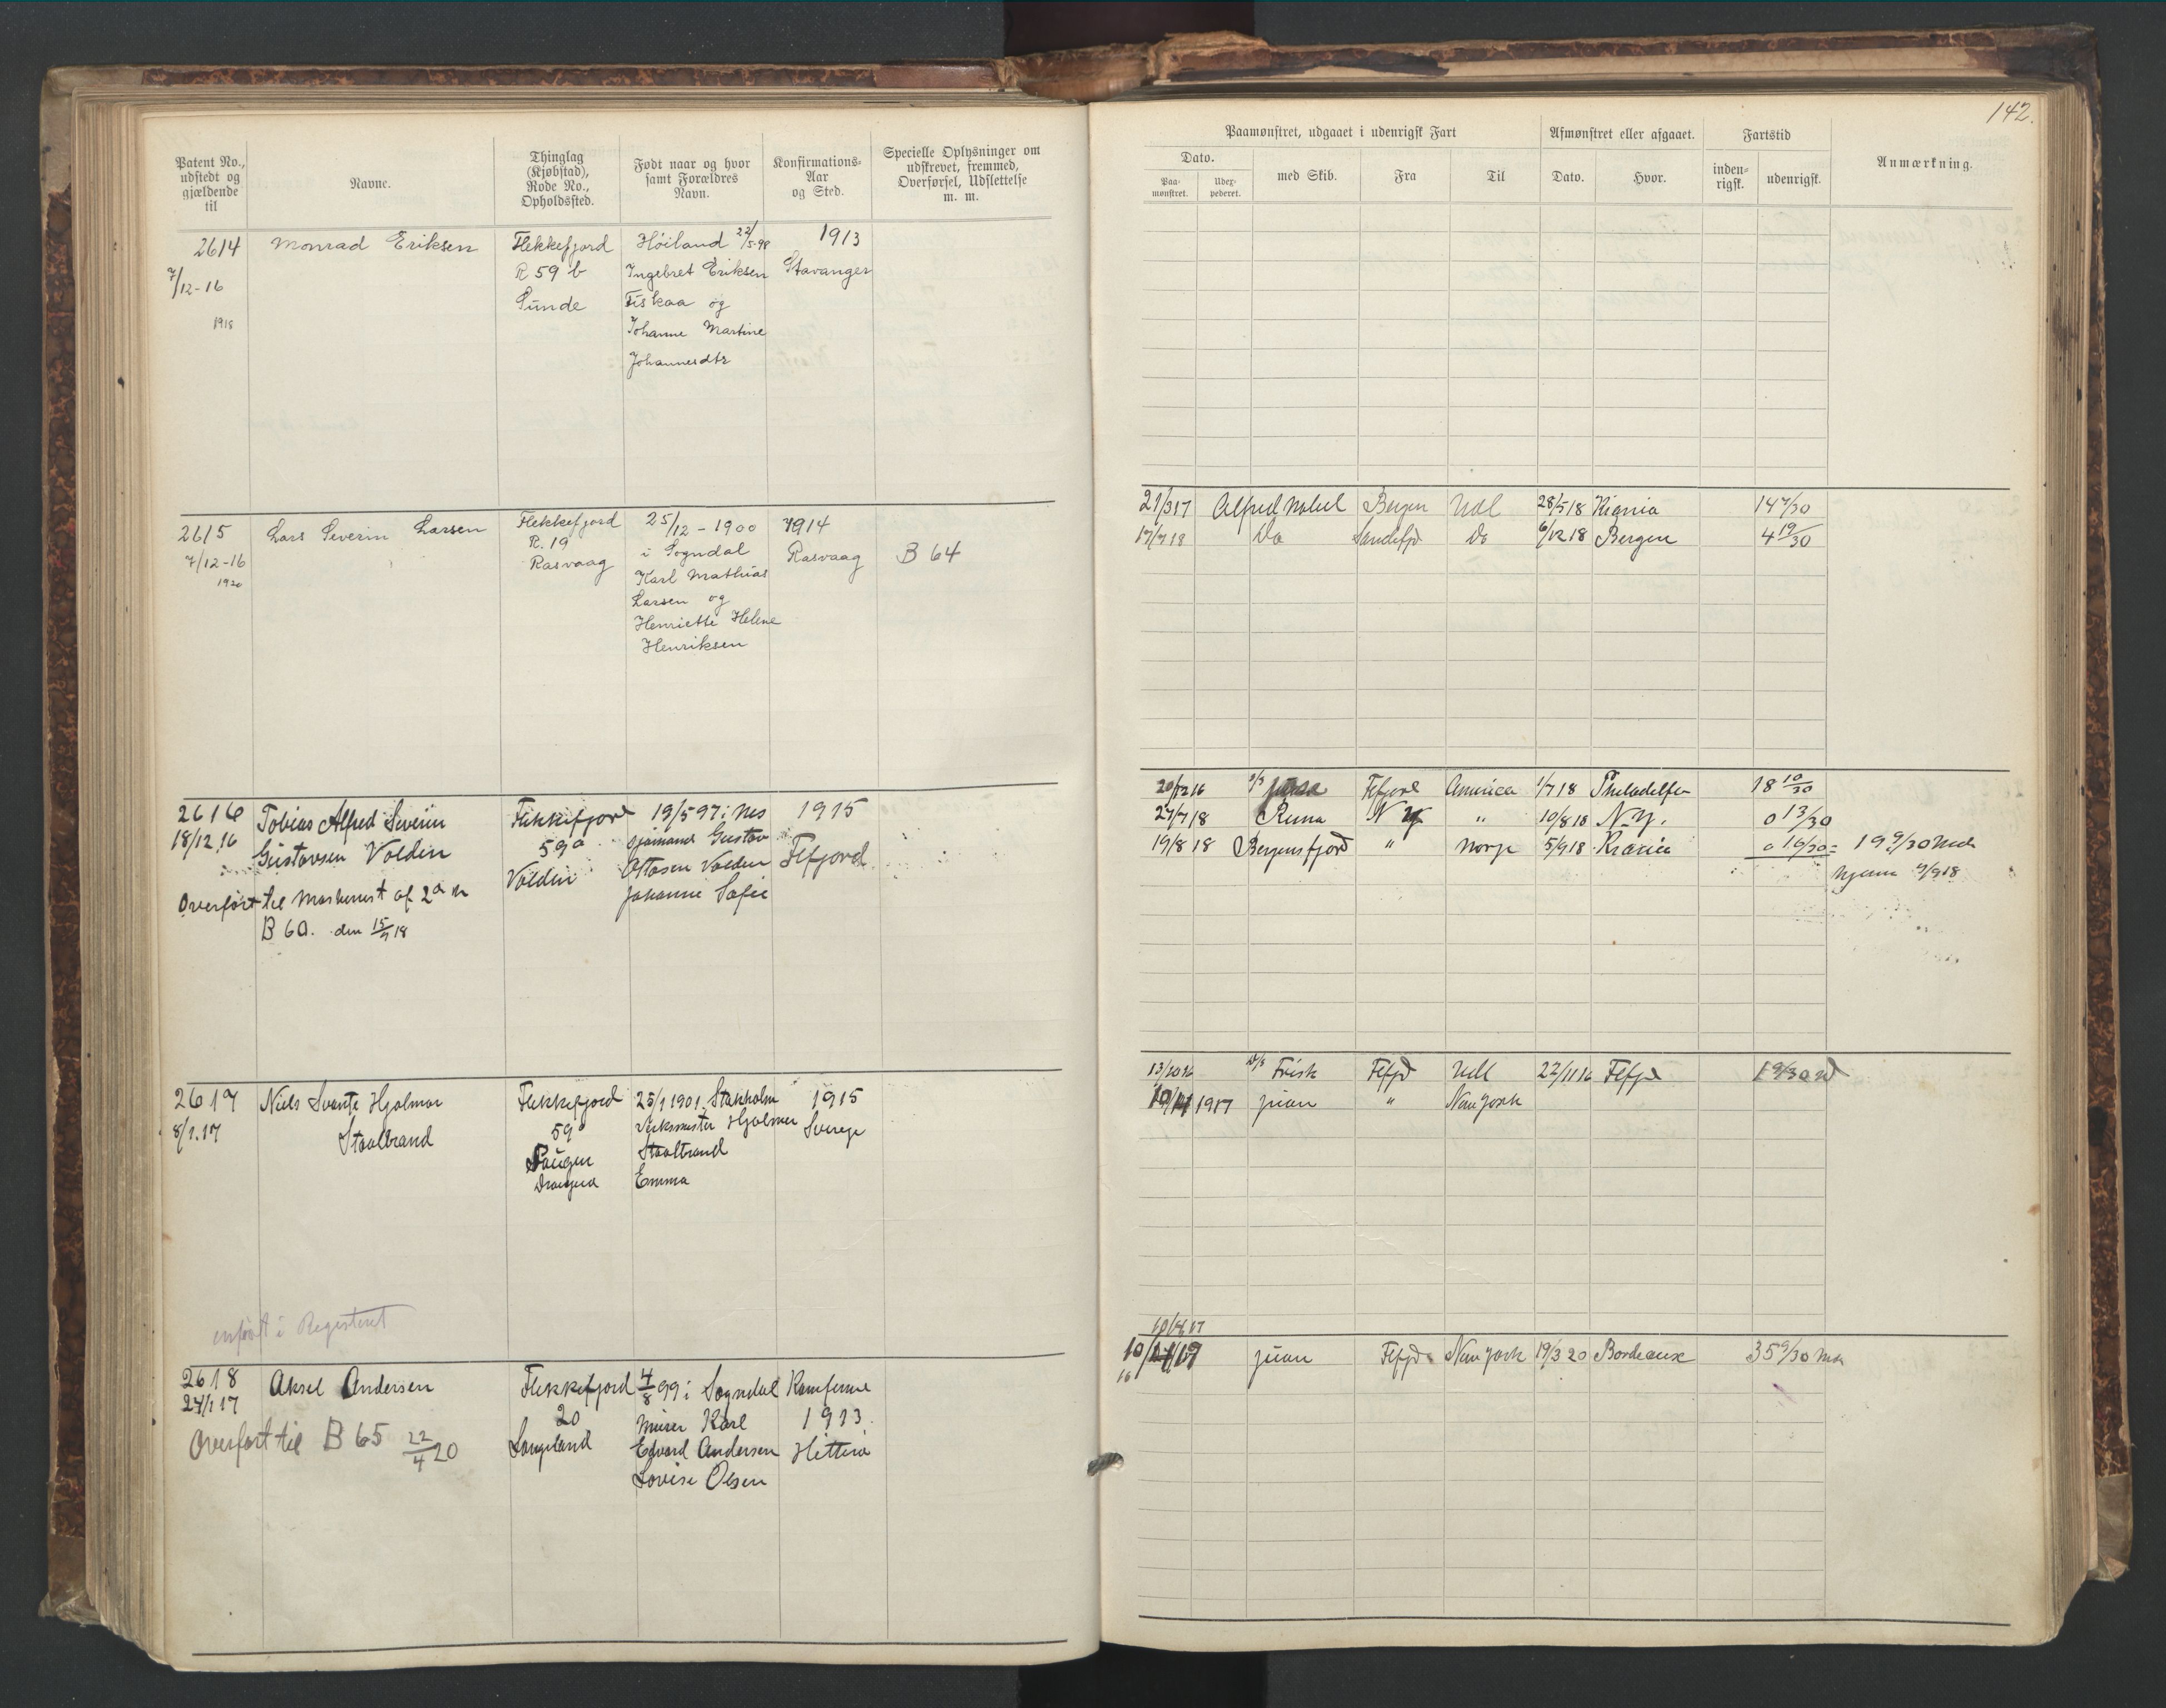 142.
Patent No., udstedt og gjældende til
Navne.
Thinglag (Kjøbstad), Rode No., Opholdssted.
Født naar og hvor samt Forældres Navn.
Konfirmations-Aar og Sted.
Specielle Oplysninger om udskrevet, fremmed, Overførsel, Udslettelse m. m.
Paamønstret, udgaaet i udenrigsk Fart
Afmønstret eller afgaaet.
Fartstid
Anmærkning.
Dato.
Paa-mønstret.
Udex-pederet.
med Skib.
Fra
Til
Dato.
Hvor.
inden-rigsk.
udenrigsk.
2614 Monrad Eriksen Flekkefjord Høiland 22/5-98 1913
7/12-16 R 59 b Ingebret Eriksen Stavanger
Sunde Fiskaa og
1918 Johanne Martine
Johannesdtr
2615 Lars Severin Larsen Flekkefjord 25/12-1900 1914
7/12-16 R. 19 i Sogndal Rasvaag B 64
1920 Rasvaag Karl Mathias
Larsen og
Henriette Helene
Henriksen
21/3 17 Alfred Nobel Bergen Udl 28/5 18 Kiania 14 7/30
17/7 18 Do Sandefjd Do 6/12 18 Bergen 4 19/30
2616 Tobias Alfred Severin Flekkefjord 19/5 97 i Nes 1915
18/12.16 Gustavsen Volden 59a sjømand Gustav Flfjord
Volden Ottosen Volden
Johanne Sofie
Overført til Maskinist af 2a
B 60. den 15/7 18
20/12 16 Flfjord America 1/7 18 Philadelfia 18 10/30
27/7 18 Runa N Y " 10/8 18 N.Y. 0 13/30
19/8 18 Bergensfjord " Norge 5/9 18 Krania 0 16/30 = 19 9/30 Mdr
hjem 9/9 18
2617 Niels Svante Hjalmar Flekkefjord 25/1 1901. Stokholm 1915
8/1.17 Staalbrand 59a Verksmester Hjalmer Sverge
Haugen Staalbrand
Drangeid Emma
D/S Frisk Flfjd Udl 22/11 16 Flfjd
1917 Juan " New York
enført i Registeret
10/4 17
2618 Aksel Andersen Flekkefjord 4/8 99 i Sogndal
24/1 17 20 Murer Karl 1913.
Overført til B 65 22/4 20 Langeland Edvard Andersen Hitterø
Lovise Olsen
Juan Flfjd New York 19/3 20 Bordeaux 35 9/30 Mdr